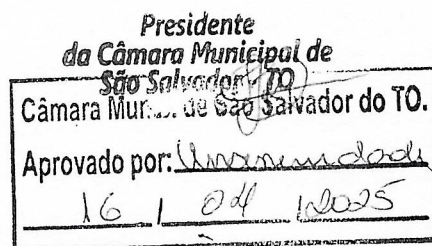 Presidente
da Câmara Municipal de
São Salvador - TO
Câmara Mun. de São Salvador do TO.
Aprovado por: Unanimidade
16 / 04 / 2025